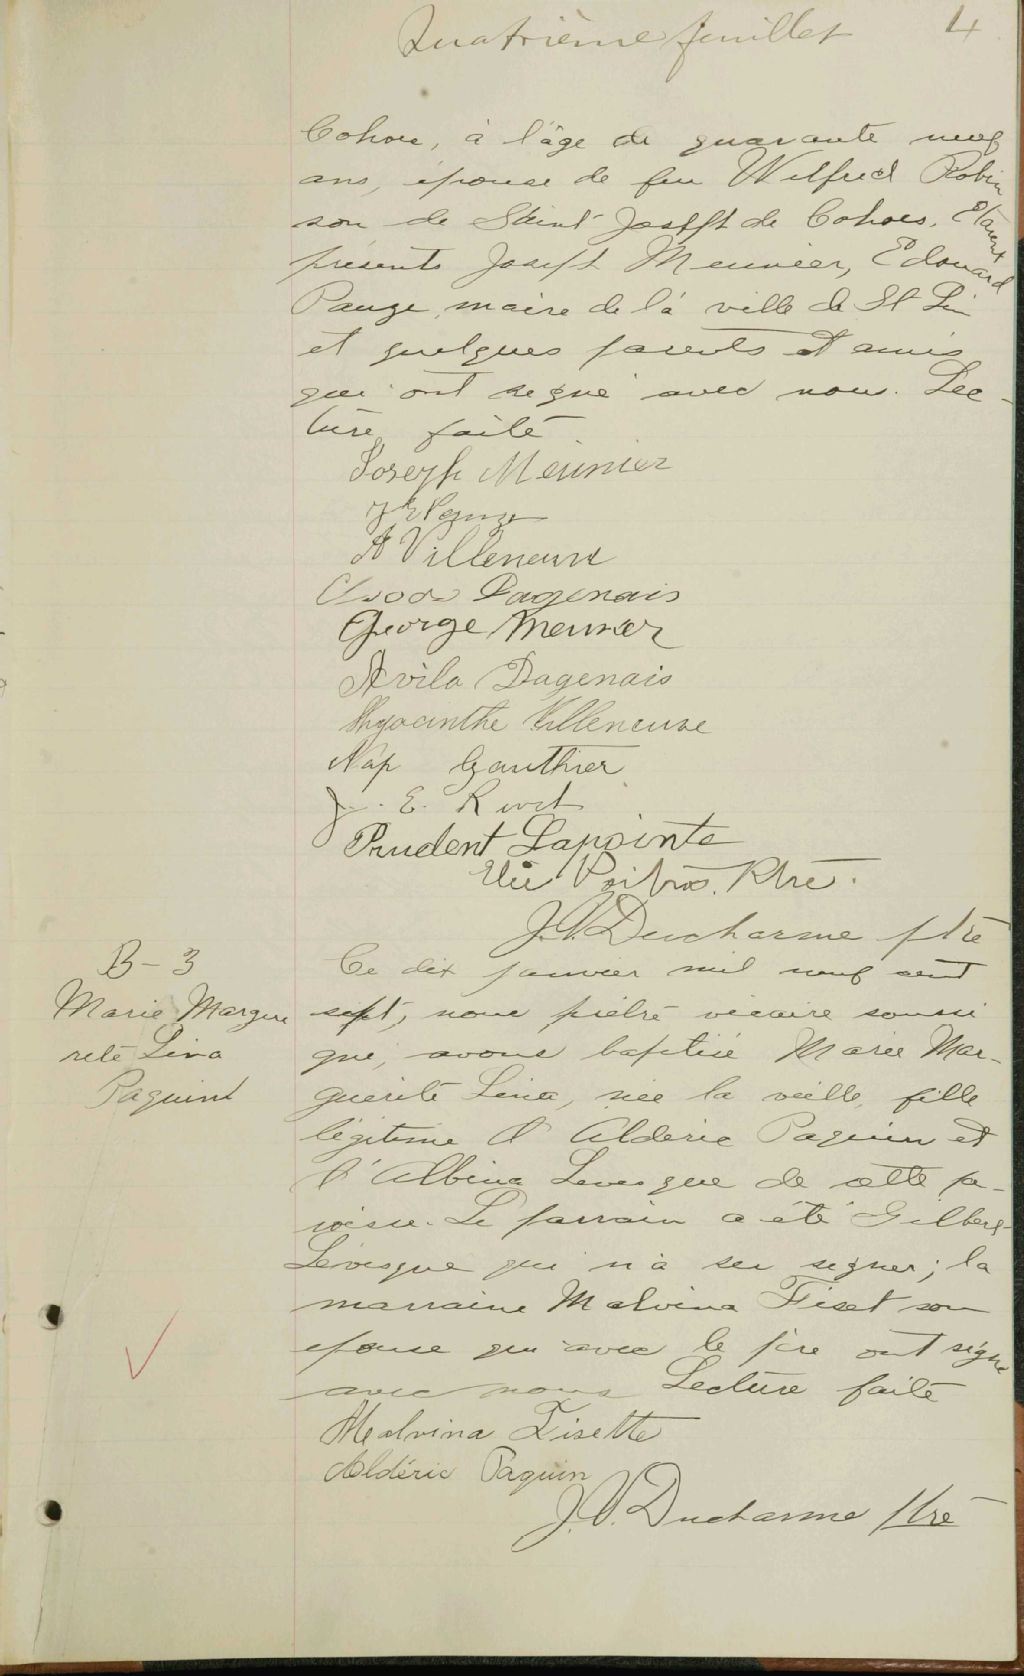 Quatrième feuillet 4
Cohoes, à l'âge de quarante neuf
ans, épouse de feu Wilfred Robin
son de Saint Joseph de Cohoes. Etaient
présents Joseph Meunier, Edouard
Pauze, maire de la ville de St Lin
et quelques parents et amis
qui ont signé avec nous. Lec-
ture faite
Joseph Meunier
Pauze
A Villeneuve
Dagenais
George Meunier
Avila Dagenais
Hyacinthe Villeneuve
Nap Gauthier
J. E. Rivet
Prudent Lapointe
Ptre.
J.V. Ducharme ptre
B-3
Marie Margue
rite Lina
Paquin
Ce dix janvier mil neuf cent
sept, nous prêtre vicaire soussi
gné, avons baptisé Marie Mar-
guerite Lina, née la veille, fille
légitime d'Aldéric Paquin et
d'Albina Levesque de cette pa-
roisse. Le parrain a été Gilbert
Lévesque qui n'a su signer; la
marraine Malvina Fiset son
épouse qui avec le père ont signé
avec nous Lecture faite
Malvina Fisette
Aldéric Paquin
J.V. Ducharme ptre